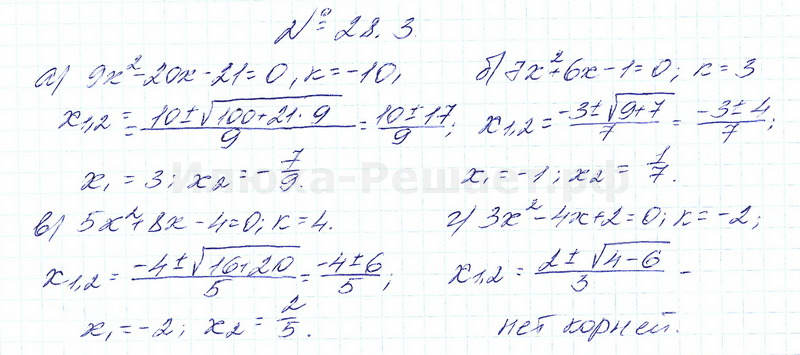 № 28.3
а) 9x² - 20x - 21 = 0, k = -10,
x₁,₂ = (10 ± √(100 + 21·9))/9 = (10 ± 17)/9;
x₁ = 3; x₂ = -7/9.
б) 7x² + 6x - 1 = 0; k = 3
x₁,₂ = (-3 ± √(9+7))/7 = (-3 ± 4)/7;
x₁ = -1; x₂ = 1/7.
в) 5x² + 8x - 4 = 0; k = 4.
x₁,₂ = (-4 ± √(16+20))/5 = (-4 ± 6)/5;
x₁ = -2; x₂ = 2/5.
г) 3x² - 4x + 2 = 0; k = -2;
x₁,₂ = (2 ± √(4-6))/3 -
нет корней.
Илюха-Решает.рф